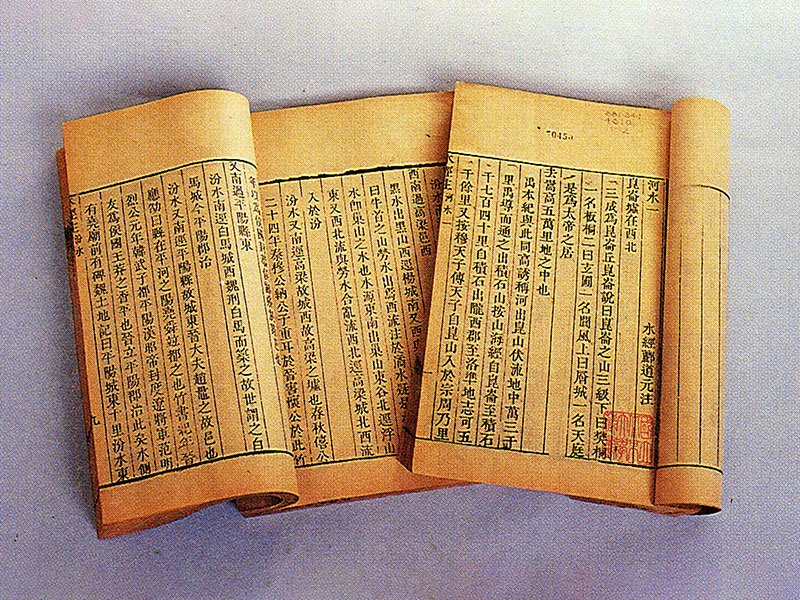 70459
河水一
水經 酈道元注
崑崙墟在西北
三成為崑崙丘崑崙說曰崑崙之山三級下曰樊桐
一名板桐二曰玄圃一名閬風上曰層城一名天庭
是為太帝之居
去嵩高五萬里地之中也
禹本紀與此同高誘稱河出崑山伏流地中萬三千
里禹導而通之出積石山按山海經自崑崙至積石
一千七百四十里自積石出隴西郡至洛準地志可五
千餘里又按穆天子傳天子自崑山入於宗周乃里
西南過高梁邑西
黑水出黑山西逕楊城南又西與
曰牛首之山勞水出焉西流注於潏水疑是
水即巢山之水也水源東南出巢山東谷北逕浮山
東又西北流與勞水合亂流西北逕高梁城北西流
入於汾
汾水又南逕高梁故城西故高梁之墟也春秋僖公
二十四年秦穆公納公子重耳於晉害懷公於此竹
又南過平陽縣東
汾水南逕白馬城西魏刑白馬而築之故世謂之白
馬城今平陽郡治
汾水又南逕平陽縣故城東晉大夫趙鼂之故邑也
應劭曰縣在平河之陽堯舜並都之也竹書紀年晉
烈公元年韓武子都平陽漢昭帝封度遼將軍范明
友為侯國王莽之香平也魏立平陽郡治此矣水側
有堯廟廟前有碑魏土地記曰平陽城東十里汾水東
九